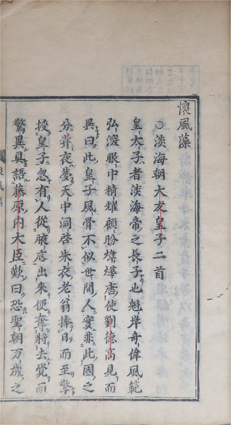 懷風藻
○淡海朝大友皇子二首
皇太子者淡海帝之長子也魁岸奇偉風範
弘深眼中精耀顧盻煒燁唐使劉德高見而
異曰此皇子風骨不似世間人實非此國之
分嘗夜夢天中洞啓朱衣老翁捧日而至擎
授皇子忽有人從腋底出來便奪將去覺而
驚異具語藤原内大臣歎曰恐聖朝万歲之